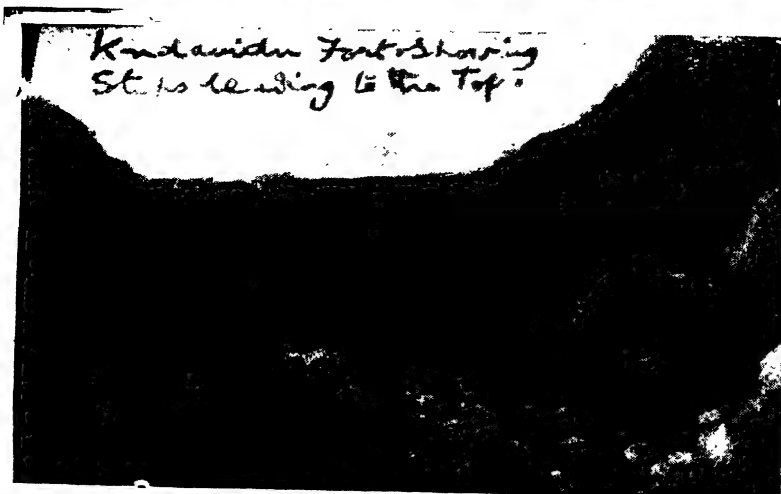 Kndavidu Fort Showing
Steps leading to the Top.